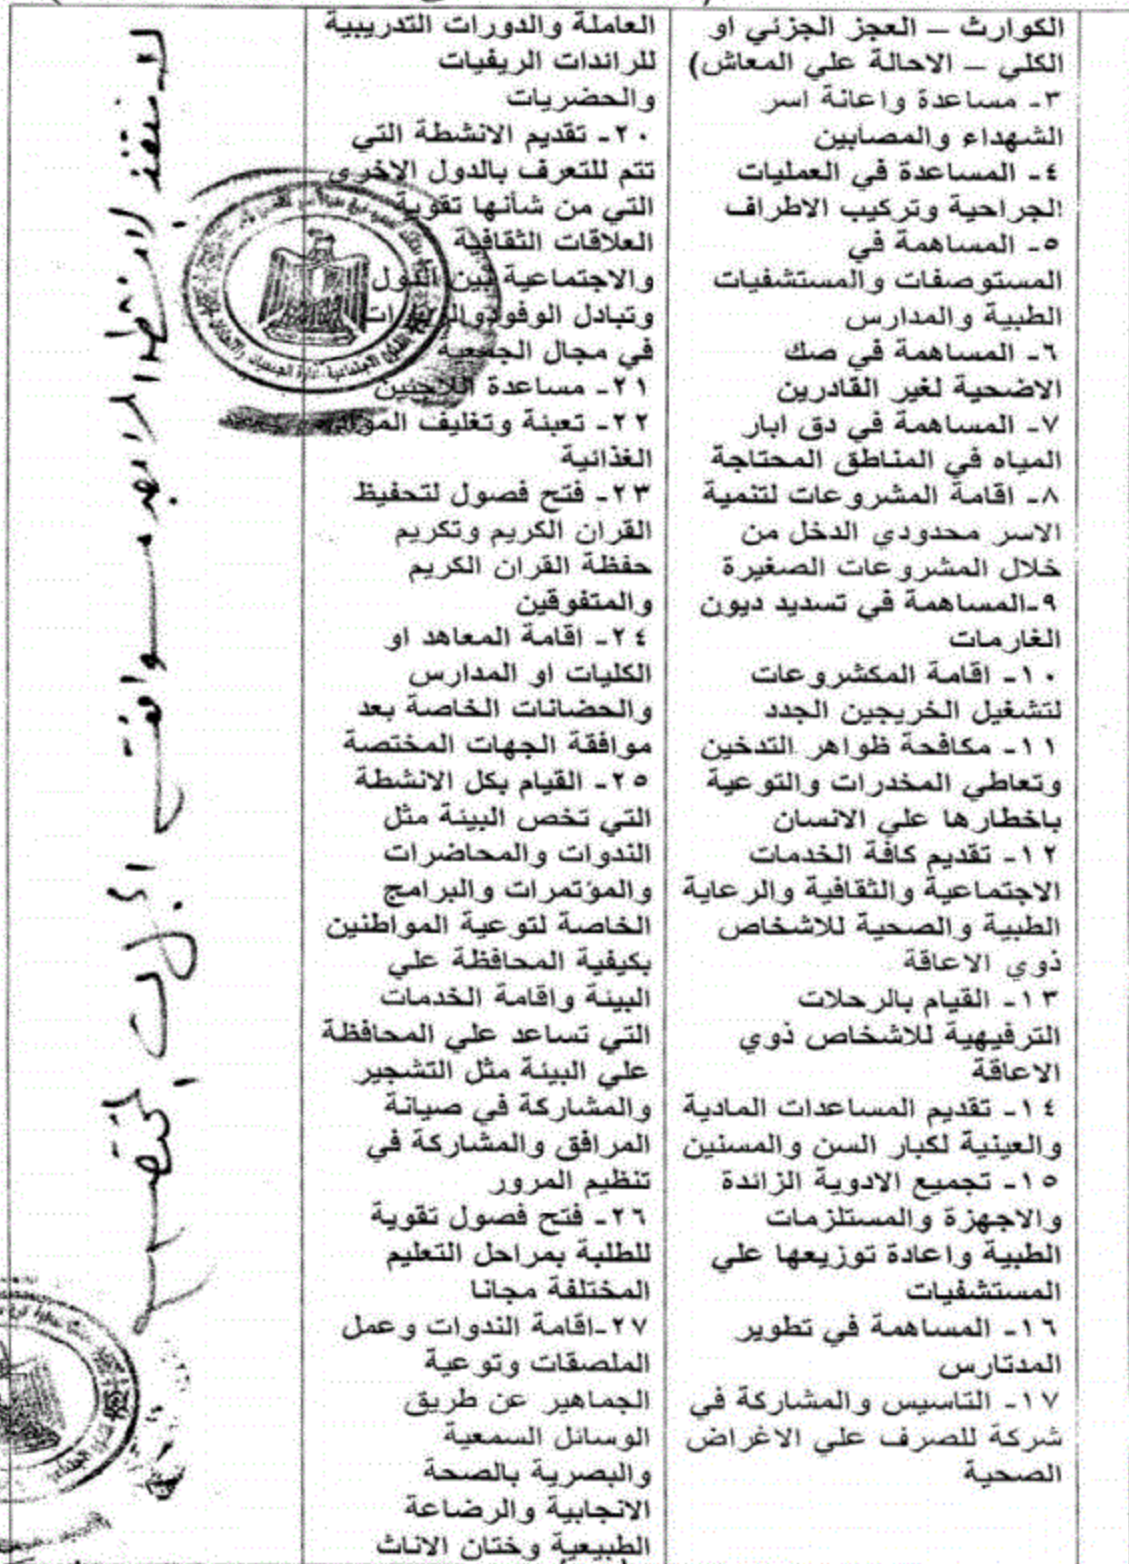 الكوارث – العجز الجزئي او
الكلي – الاحالة علي المعاش)
٣- مساعدة واعانة اسر
الشهداء والمصابين
٤- المساعدة في العمليات
الجراحية وتركيب الاطراف
٥- المساهمة في
المستوصفات والمستشفيات
الطبية والمدارس
٦- المساهمة في صك
الاضحية لغير القادرين
٧- المساهمة في دق ابار
المياه في المناطق المحتاجة
٨- اقامة المشروعات لتنمية
الاسر محدودي الدخل من
خلال المشروعات الصغيرة
٩-المساهمة في تسديد ديون
الغارمات
١٠- اقامة المكشروعات
لتشغيل الخريجين الجدد
١١- مكافحة ظواهر التدخين
وتعاطي المخدرات والتوعية
باخطارها علي الانسان
١٢- تقديم كافة الخدمات
الاجتماعية والثقافية والرعاية
الطبية والصحية للاشخاص
ذوي الاعاقة
١٣- القيام بالرحلات
الترفيهية للاشخاص ذوي
الاعاقة
١٤- تقديم المساعدات المادية
والعينية لكبار السن والمسنين
١٥- تجميع الادوية الزائدة
والاجهزة والمستلزمات
الطبية واعادة توزيعها علي
المستشفيات
١٦- المساهمة في تطوير
المدتارس
١٧- التاسيس والمشاركة في
شركة للصرف علي الاغراض
الصحية
العاملة والدورات التدريبية
للرائدات الريفيات
والحضريات
٢٠- تقديم الانشطة التي
تتم للتعرف بالدول الاخرى
التي من شأنها تقوية
العلاقات الثقافية
والاجتماعية بين الدول
وتبادل الوفود
في مجال الجمعية
٢١- مساعدة اللاجئين
٢٢- تعبئة وتغليف المواد
الغذائية
٢٣- فتح فصول لتحفيظ
القران الكريم وتكريم
حفظة القران الكريم
والمتفوقين
٢٤- اقامة المعاهد او
الكليات او المدارس
والحضانات الخاصة بعد
موافقة الجهات المختصة
٢٥- القيام بكل الانشطة
التي تخص البيئة مثل
الندوات والمحاضرات
والمؤتمرات والبرامج
الخاصة لتوعية المواطنين
بكيفية المحافظة علي
البيئة واقامة الخدمات
التي تساعد علي المحافظة
علي البيئة مثل التشجير
والمشاركة في صيانة
المرافق والمشاركة في
تنظيم المرور
٢٦- فتح فصول تقوية
للطلبة بمراحل التعليم
المختلفة مجانا
٢٧-اقامة الندوات وعمل
الملصقات وتوعية
الجماهير عن طريق
الوسائل السمعية
والبصرية بالصحة
الانجابية والرضاعة
الطبيعية وختان الاناث